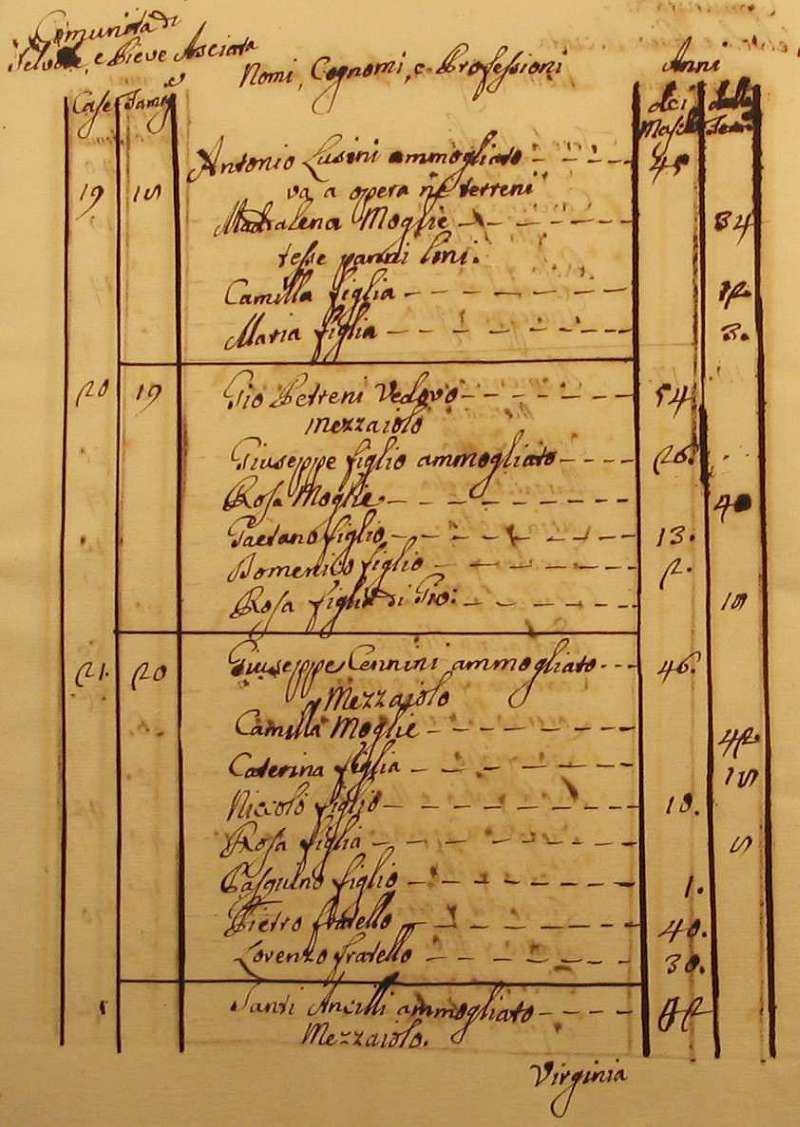 Comunità di
Selvole, e Pieve Asciata
Nomi, Cognomi, e Professioni Anni
Case Famig.e dei Maschi delle Fem.e
19 18 Antonio Lusini ammogliato 45
va a opera ne terreni
Madalena Moglie 34
tesse panni lini.
Camilla figlia 12.
Maria figlia 3.
20 19 Gio Petreni Vedovo 54.
Mezzaiolo
Giuseppe figlio ammogliato 26.
Rosa Moglie.
Gaetano figlio 13.
Domenico figlio 2.
Rosa figlia di Gio: 15
21. 20 Giuseppe Cennini ammogliato 46.
Mezzaiolo
Camilla Moglie 42.
Caterina figlia 15
Niccolò figlio 10.
Rosa figlia 5
Pasquino figlio 1.
Pietro fratello 40.
Lorenzo fratello 30.
Santi Ancilli ammogliato
Mezzaiolo.
Virginia